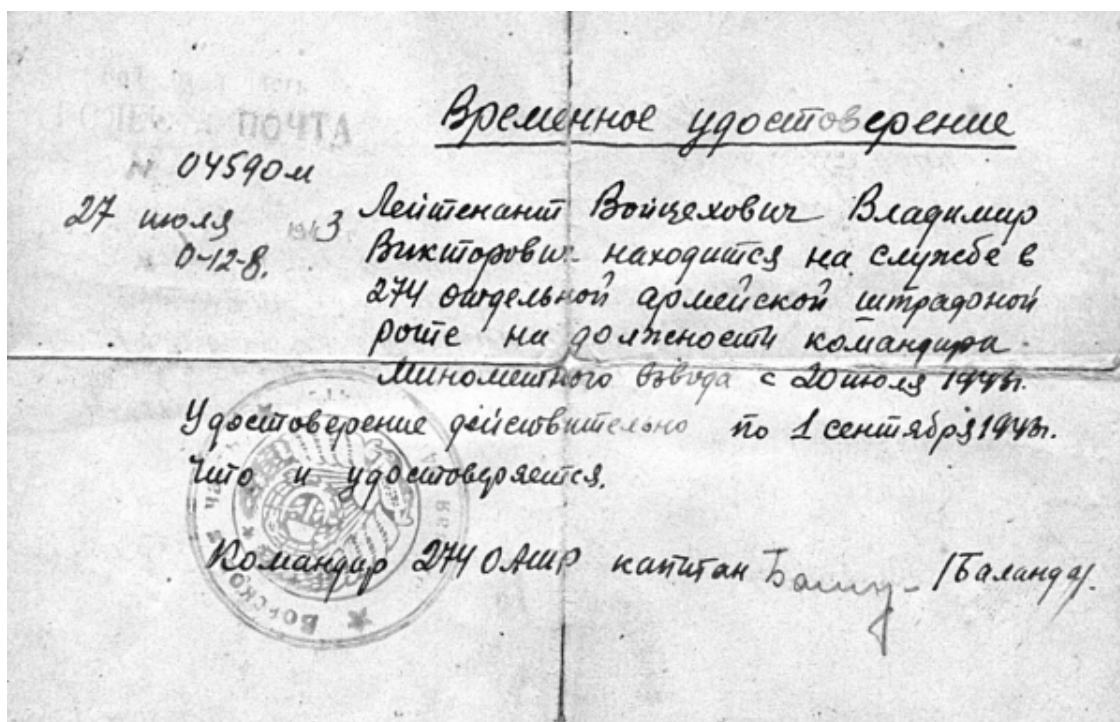 ПОЧТА
Временное удостоверение
№ 04590м
27 июля 1943
0-12-8.
Лейтенант Войцехович Владимир
Викторович находится на службе в
274 отдельной армейской штрафной
роте на должности командира
Миномётного взвода с 20 июля 1943г.
Удостоверение действительно по 1 сентября 1943г.
Что и удостоверяется.
Командир 274 ОАШР капитан /Баланда/.